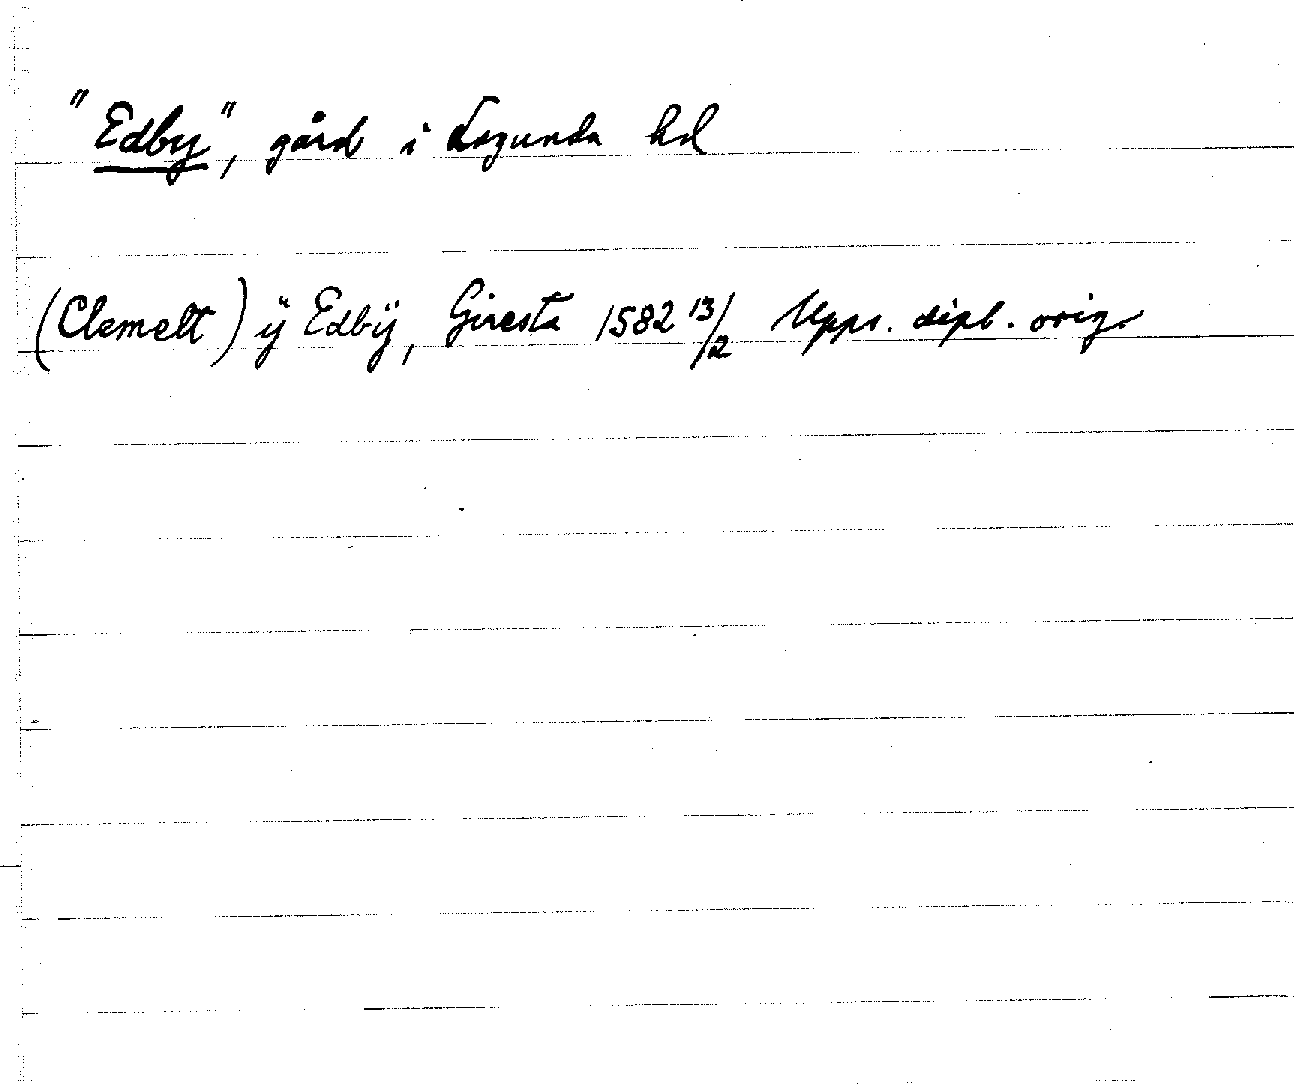 "Edby", gård i Lagunda hd
(Clemelt) ÿ Edbÿ, Giresta 1582 13/2 Upps. dipl. orig.